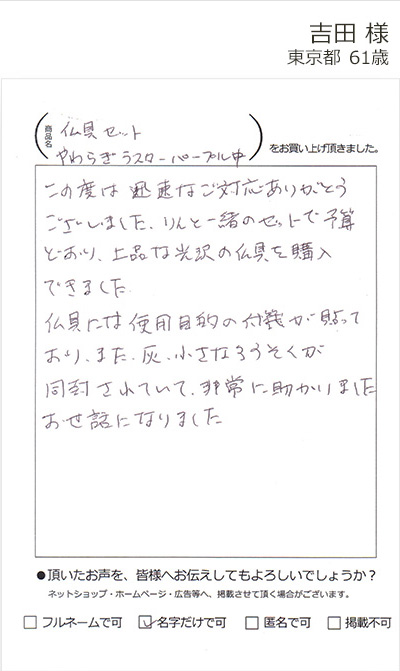 吉田 様
東京都 61歳
商品名 仏具セット
やわらぎラスターパープル中
をお買い上げ頂きました。
この度は 迅速なご対応ありがとう
ございました、りんと一緒のセットで予算
どおり、上品な光沢の仏具を購入
できました
仏具には使用目的の付箋が貼って
おり、また、灰、小さなろうそくが
同封されていて、非常に助かりました
お世話になりました
●頂いたお声を、皆様へお伝えしてもよろしいでしょうか?
ネットショップ・ホームページ・広告等へ、掲載させて頂く場合がございます。
□ フルネームで可 ☑ 名字だけで可 □ 匿名で可 □ 掲載不可